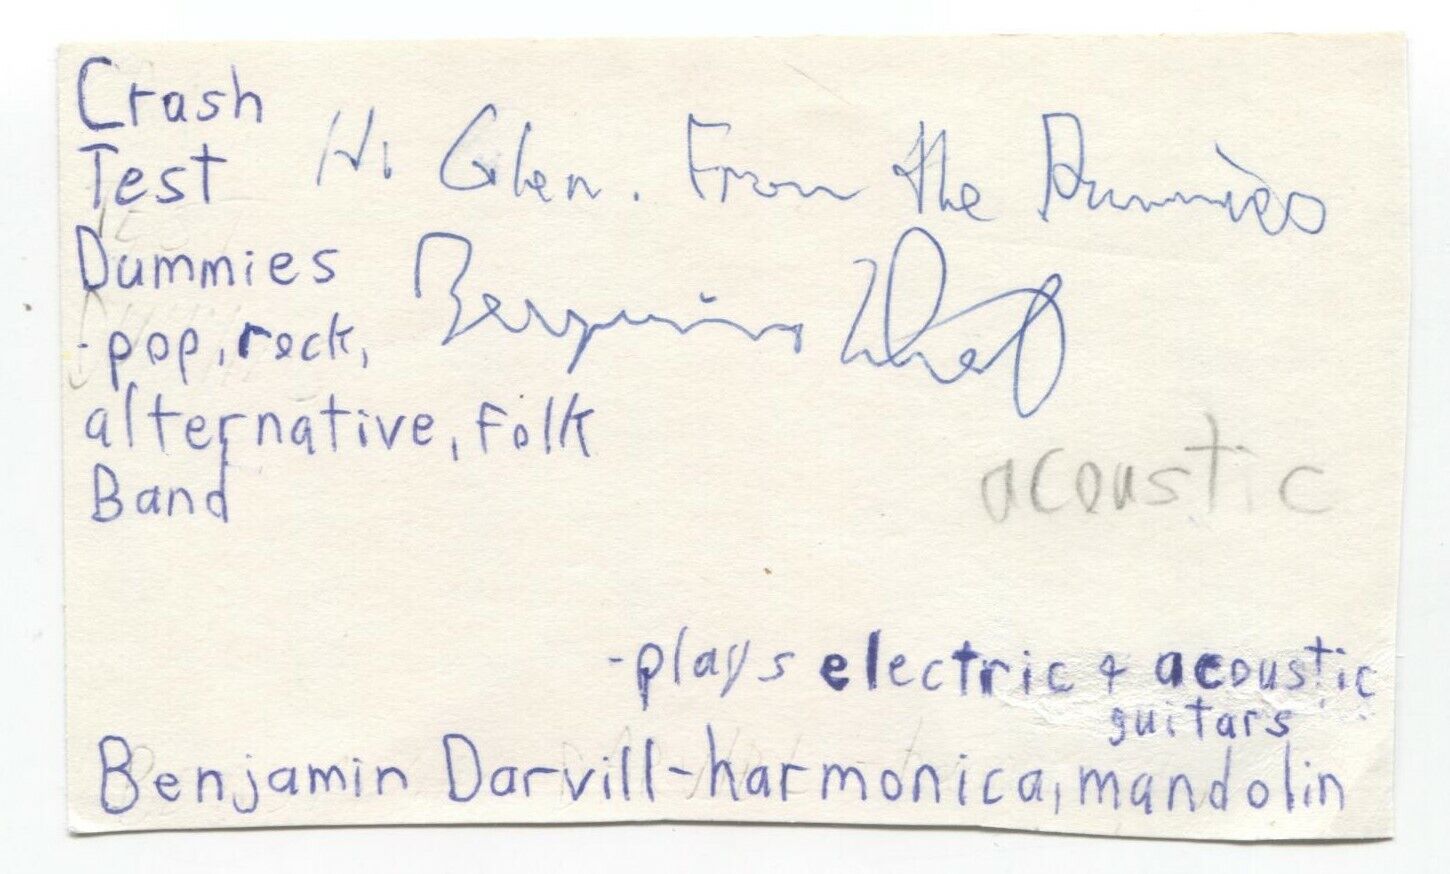 Crash
Test
Dummies
-pop, rock,
alternative, Folk
Band
Hi Glen. From the Dummies
Benjamin
acoustic
-plays electric + acoustic
guitars
Benjamin Darvill-harmonica, mandolin